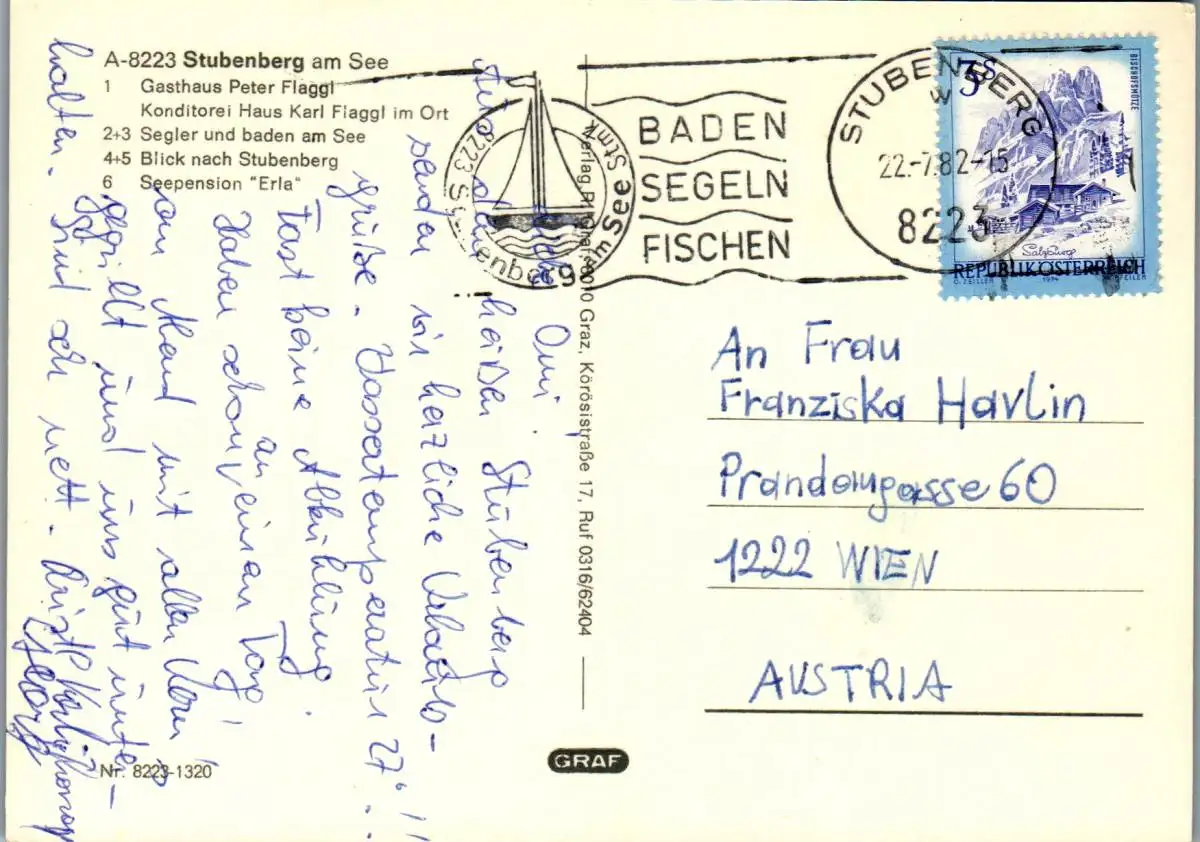 A-8223 Stubenberg am See
1 Gasthaus Peter Flaggl
Konditorei Haus Karl Flaggl im Ort
2+3 Segler und baden am See
4+5 Blick nach Stubenberg
6 Seepension "Erla"
8223 Stubenberg am See Stmk
BADEN
SEGELN
FISCHEN
STUBENBERG
W
22.-7.82-15
8223
5
S
BISCHOFSMÜTZE
Salzburg
REPUBLIK ÖSTERREICH
O. ZEILER 1974
Omi,
Aus dem heißen Stubenberg
senden wir herzliche Urlaubs-
grüße. Wassertemperatur 27°!!
Fast keine Abkühlung.
Haben schon an einem Tag
am Abend mit allen
gespielt und uns gut unter-
halten. Sind sehr nett.
Georg
Verlag 8010 Graz, Körösistraße 17, Ruf 0316/62404
An Frau
Franziska Havlin
Prandaugasse 60
1222 WIEN
AUSTRIA
Nr. 8223-1320
GRAF